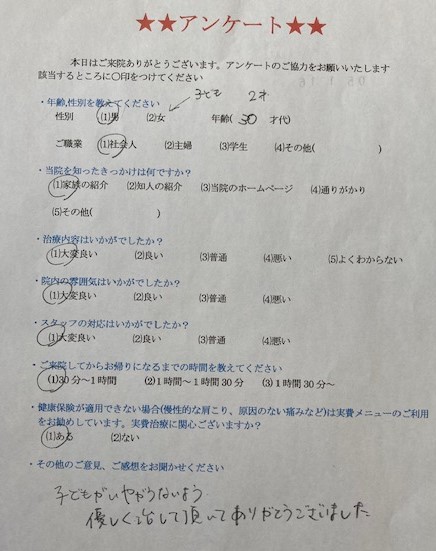 ★★アンケート★★
本日はご来院ありがとうございます。アンケートのご協力をお願いいたします
該当するところに〇印をつけてください
・年齢,性別を教えてください
子ども 2才
性別 (1)男 (2)女 年齢( 30 才代)
ご職業 (1)社会人 (2)主婦 (3)学生 (4)その他( )
・当院を知ったきっかけは何ですか?
(1)家族の紹介 (2)知人の紹介 (3)当院のホームページ (4)通りがかり
(5)その他( )
・治療内容はいかがでしたか?
(1)大変良い (2)良い (3)普通 (4)悪い (5)よくわからない
・院内の雰囲気はいかがでしたか?
(1)大変良い (2)良い (3)普通 (4)悪い
・スタッフの対応はいかがでしたか?
(1)大変良い (2)良い (3)普通 (4)悪い
・ご来院してからお帰りになるまでの時間を教えてください
(1)30分〜1時間 (2)1時間〜1時間30分 (3)1時間30分〜
・健康保険が適用できない場合(慢性的な肩こり、原因のない痛みなど)は実費メニューのご利用
をお勧めしています。実費治療に関心ございますか?
(1)ある (2)ない
・その他のご意見、ご感想をお聞かせください
子どもがいやがらないよう
優しく治して頂いてありがとうございました